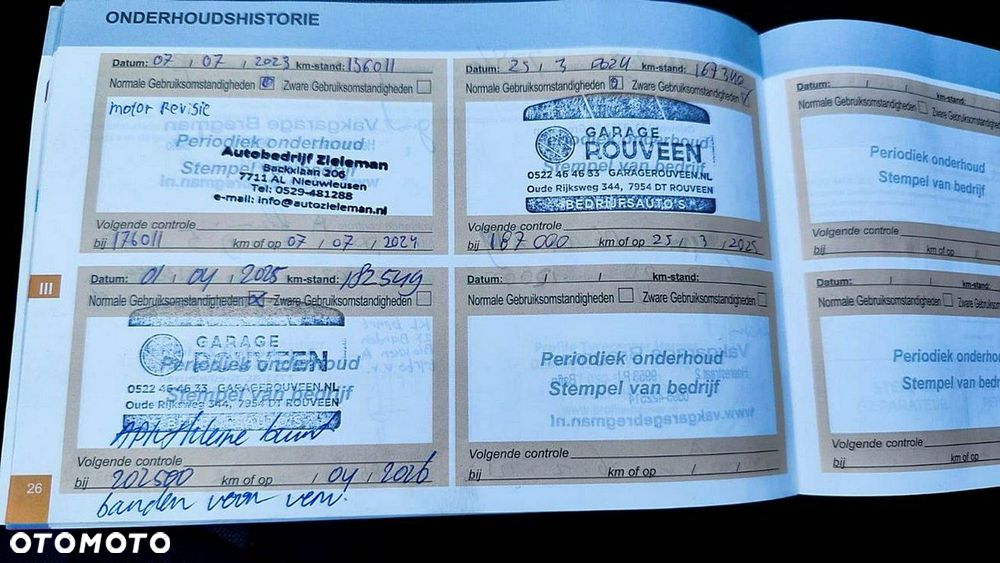 ONDERHOUDSHISTORIE
Datum: 07 / 07 / 2023 km-stand: 156011
Normale Gebruiksomstandigheden Zware Gebruiksomstandigheden
motor Revisie
Periodiek onderhoud
Stempel van bedrijf
Autobedrijf Zieleman
Backxlaan 206
7711 AL Nieuwleusen
Tel: 0529-481288
e-mail: info@autozieleman.nl
Volgende controle
bij 176011 km of op 07 / 07 / 2024
Datum: 25 / 3 / 2024 km-stand: 167340
Normale Gebruiksomstandigheden Zware Gebruiksomstandigheden
GARAGE
ROUVEEN
0522 46 46 33 GARAGEROUVEEN.NL
Oude Rijksweg 344, 7954 DT ROUVEEN
BEDRIJFSAUTO'S
Volgende controle
bij 187000 km of op 25 / 3 / 2025
Datum: / / km-stand:
Normale Gebruiksomstandigheden
Periodiek onderhoud
Stempel van bedrijf
Volgende controle
bij km of op
III
Datum: 01 / 04 / 2025 km-stand: 182549
Normale Gebruiksomstandigheden Zware Gebruiksomstandigheden
GARAGE
ROUVEEN
Periodiek onderhoud
Stempel van bedrijf
0522 46 46 33 GARAGEROUVEEN.NL
Oude Rijksweg 344, 7954 DT ROUVEEN
APK + kleine beurt
Volgende controle
bij 202500 km of op / 04 / 2026
banden voor verv!
Datum: / / km-stand:
Normale Gebruiksomstandigheden Zware Gebruiksomstandigheden
Periodiek onderhoud
Stempel van bedrijf
Volgende controle
bij km of op / /
Datum: / / km-stand:
Normale Gebruiksomstandigheden Zware Gebruiksomst
Periodiek onderhou
Stempel van bedr
Volgende controle
bij km of op
26
OTOMOTO